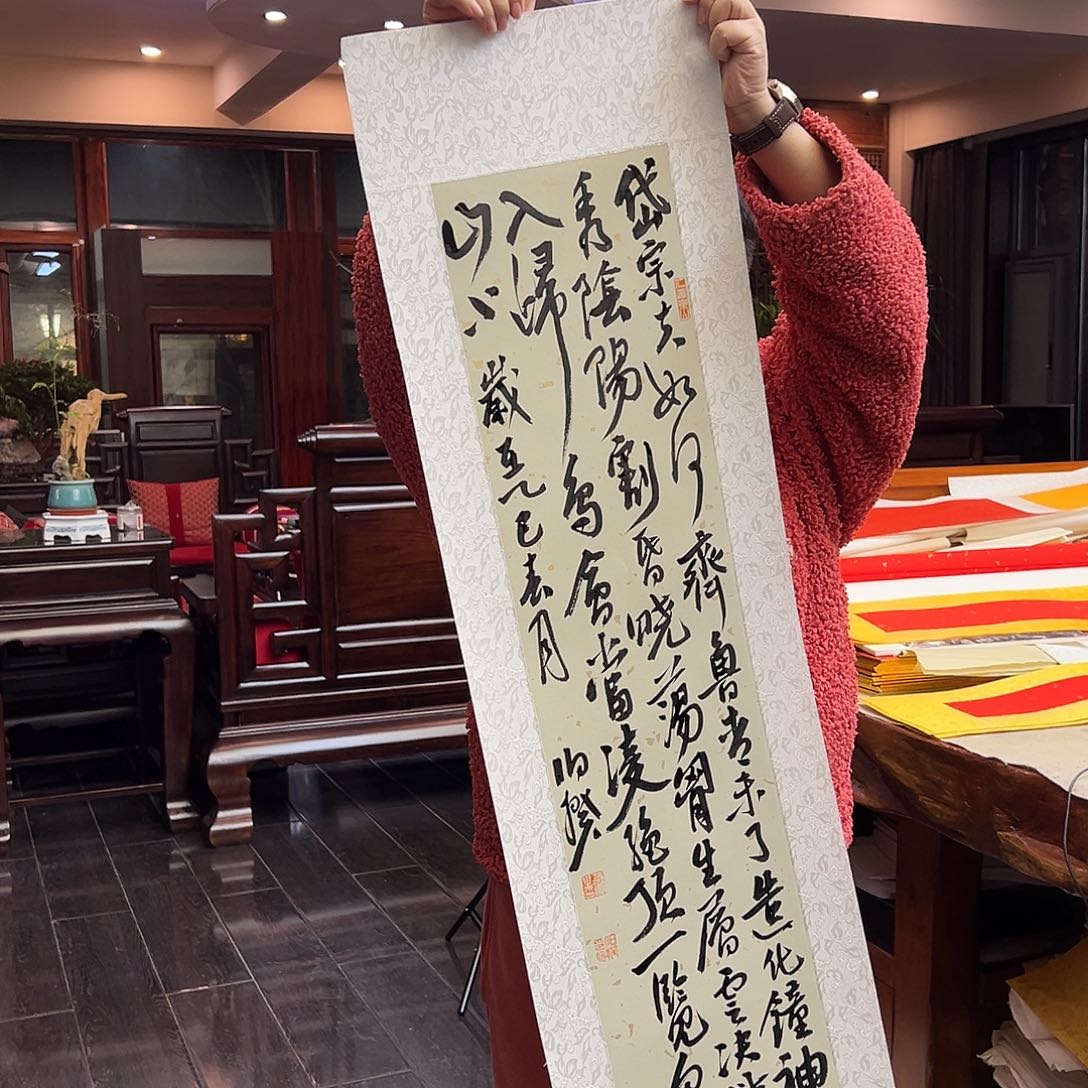 岱宗夫如何齊魯青未了造化鐘神
秀陰陽割昏曉蕩胷生層雲決
入歸鳥會當凌絕頂一覽
山小
歲在乙巳春月